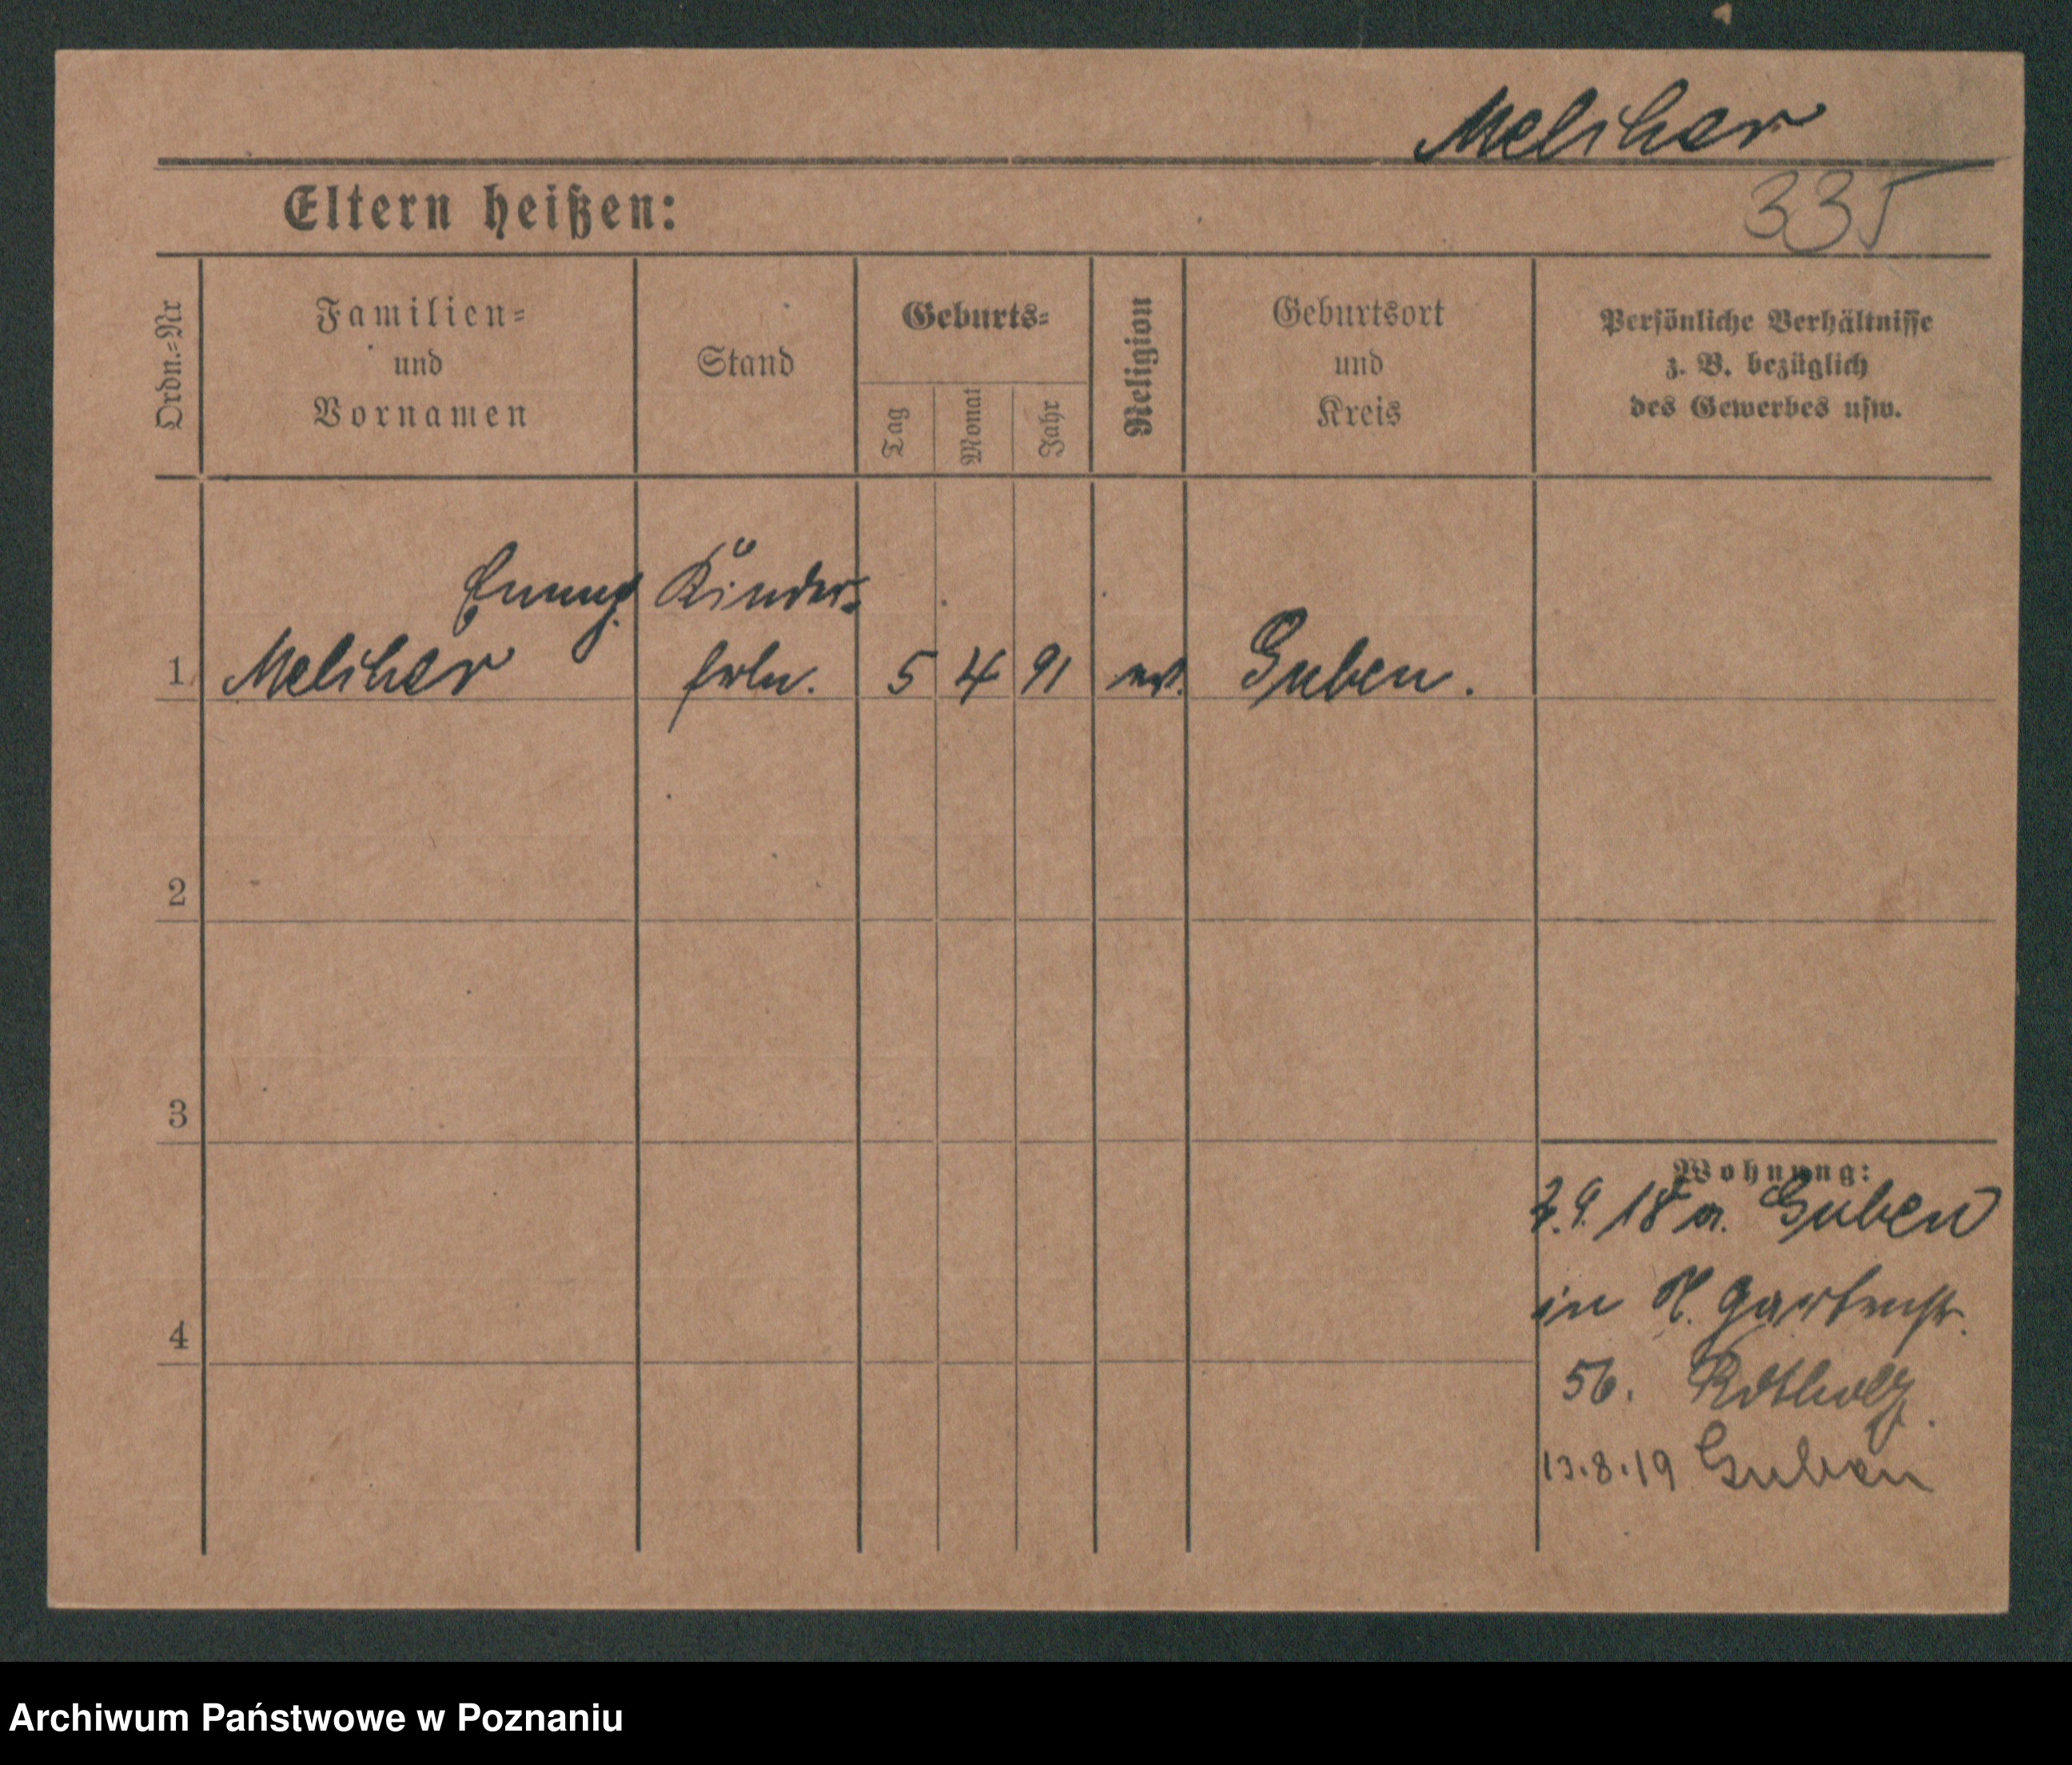 Melcher
335
Eltern heißen:
Ordn.=Nr
Familien=
und
Vornamen
Stand
Geburts=
Tag
Monat
Jahr
Religion
Geburtsort
und
Kreis
Persönliche Verhältnisse
z. B. bezüglich
des Gewerbes usw.
Kinder=
1 Melcher frln. 5 4 91 ev. Guben.
2
3
4
Wohnung:
7.9.18 a. Guben
in Gartenstr.
56. Rothholz.
13.8.19 Guben
Archiwum Państwowe w Poznaniu